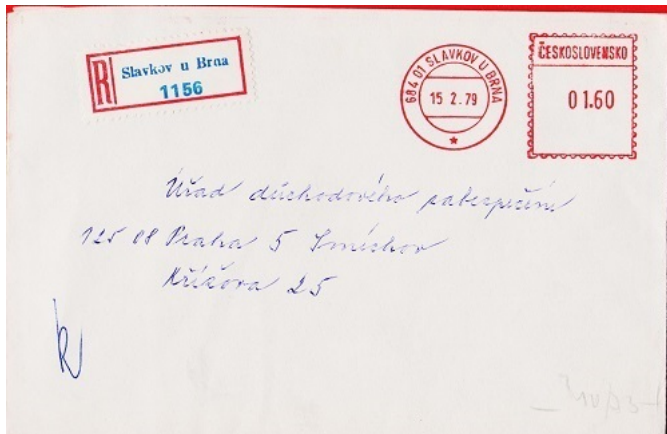 R
Slavkov u Brna
1156
684 01 SLAVKOV U BRNA
15 2.79
ČESKOSLOVENSKO
01.60
Úřad důchodového zabezpečení
125 08 Praha 5 Smíchov
Křížova 25
R